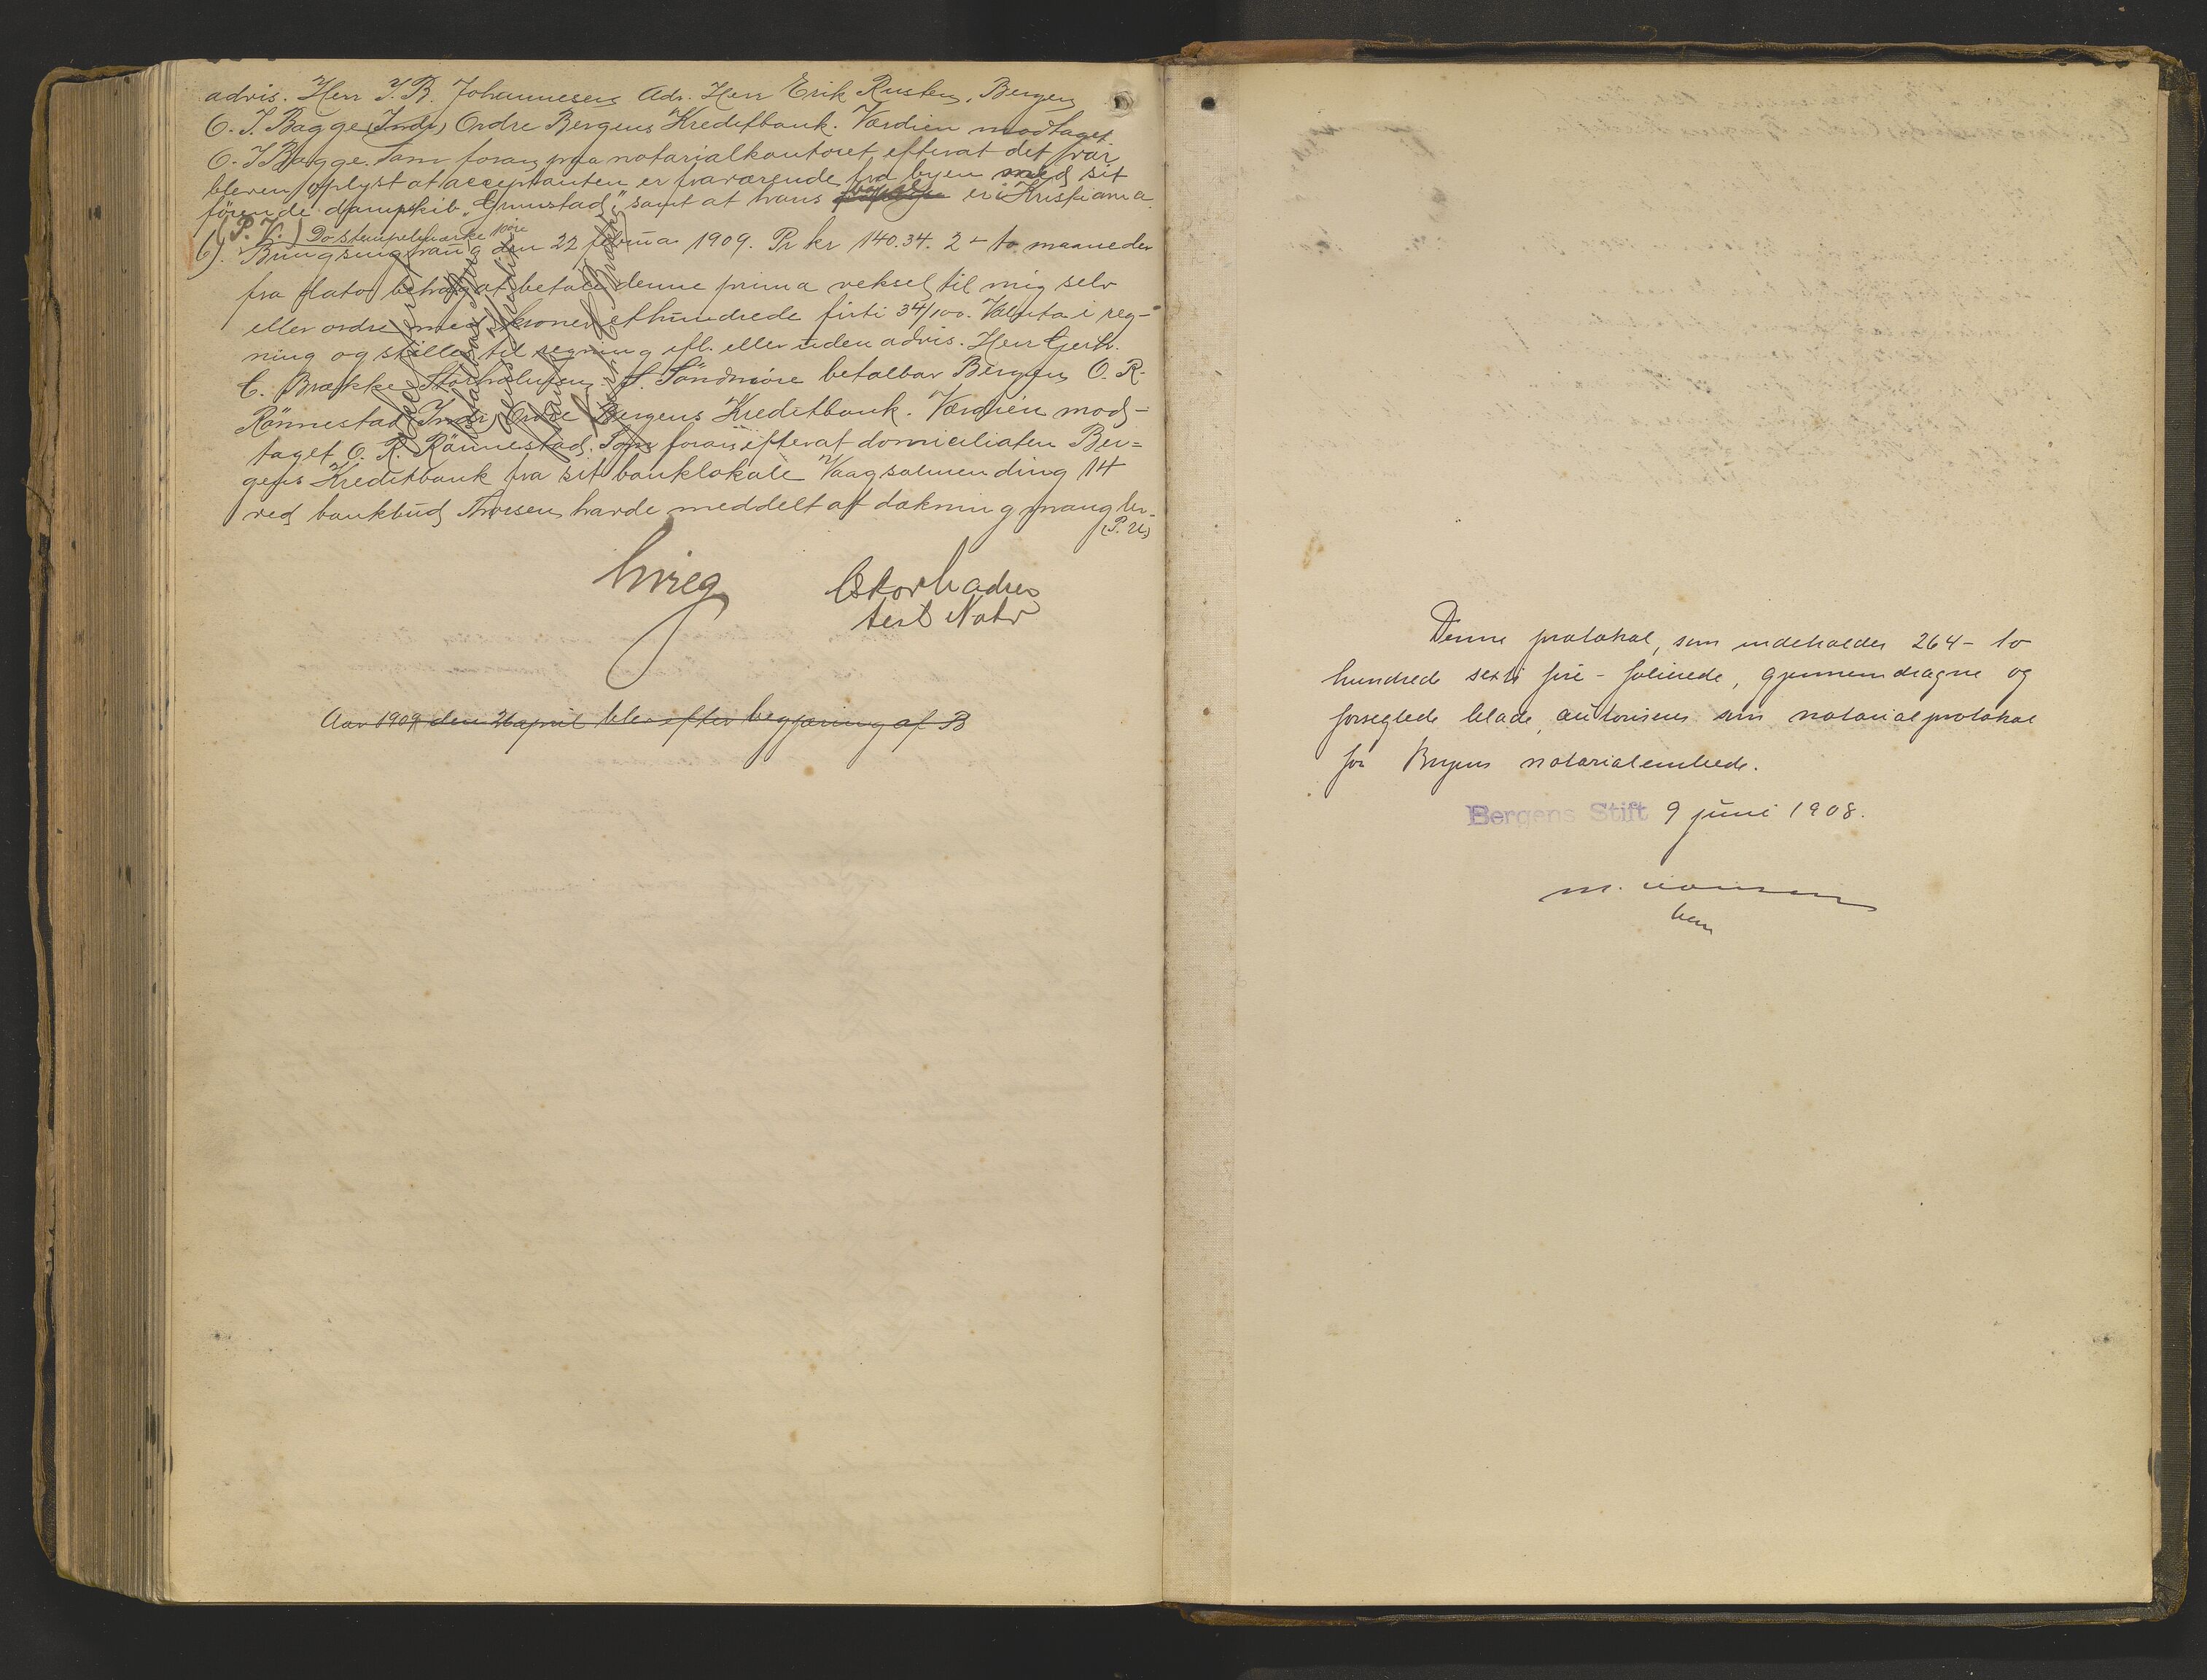 advis. Herr J. B. Johannesen Adr. Herr Erik Rusten, Bergen
O. J. Bagge (Inds) Ordre Bergens Kreditbank. Værdien modtaget
O. J Bagge. Som foran paa notarialkontoret efterat det var
bleven oplyst at acceptanten er fraværende fra byen med sit
förende dampskib "Grimstad", samt at hans bopæl er i Kristiania.
(P. V.) Do stempelmærke 10 øre
6). den 22 februa 1909. Pr kr 140.34. 2 - to maaneder
fra dato behag at betale denne prima veksel til mig selv
eller ordre med kroner ethundrede firti 34/100. Valuta i reg-
ning og stilles til regning ifl. eller uden advis. Herr Gerh.
C. Brække Storholmen S. Söndmöre betalbar Bergen O. R.
Rönnestad (Inds) Ordre Bergens Kreditbank. Værdien mod-
taget O. R. Rönnestad. Som foran efterat domiciliaten Ber-
gens Kreditbank fra sit banklokale Vaagsalmending 14
ved bankbud Thorsen havde meddelt at dækning mangler.
(P. U.)
Krieg
test Notr
Aar 1909 den 26 april blev efter begjæring af B
Denne protokol, som indeholder 264 - to
hundrede sexti fire - folierede, gjennemdragne og
forseglede blade, autoriseres som notarialprotokol
for Bergens notarialembede.
Bergens Stift 9 juni 1908.